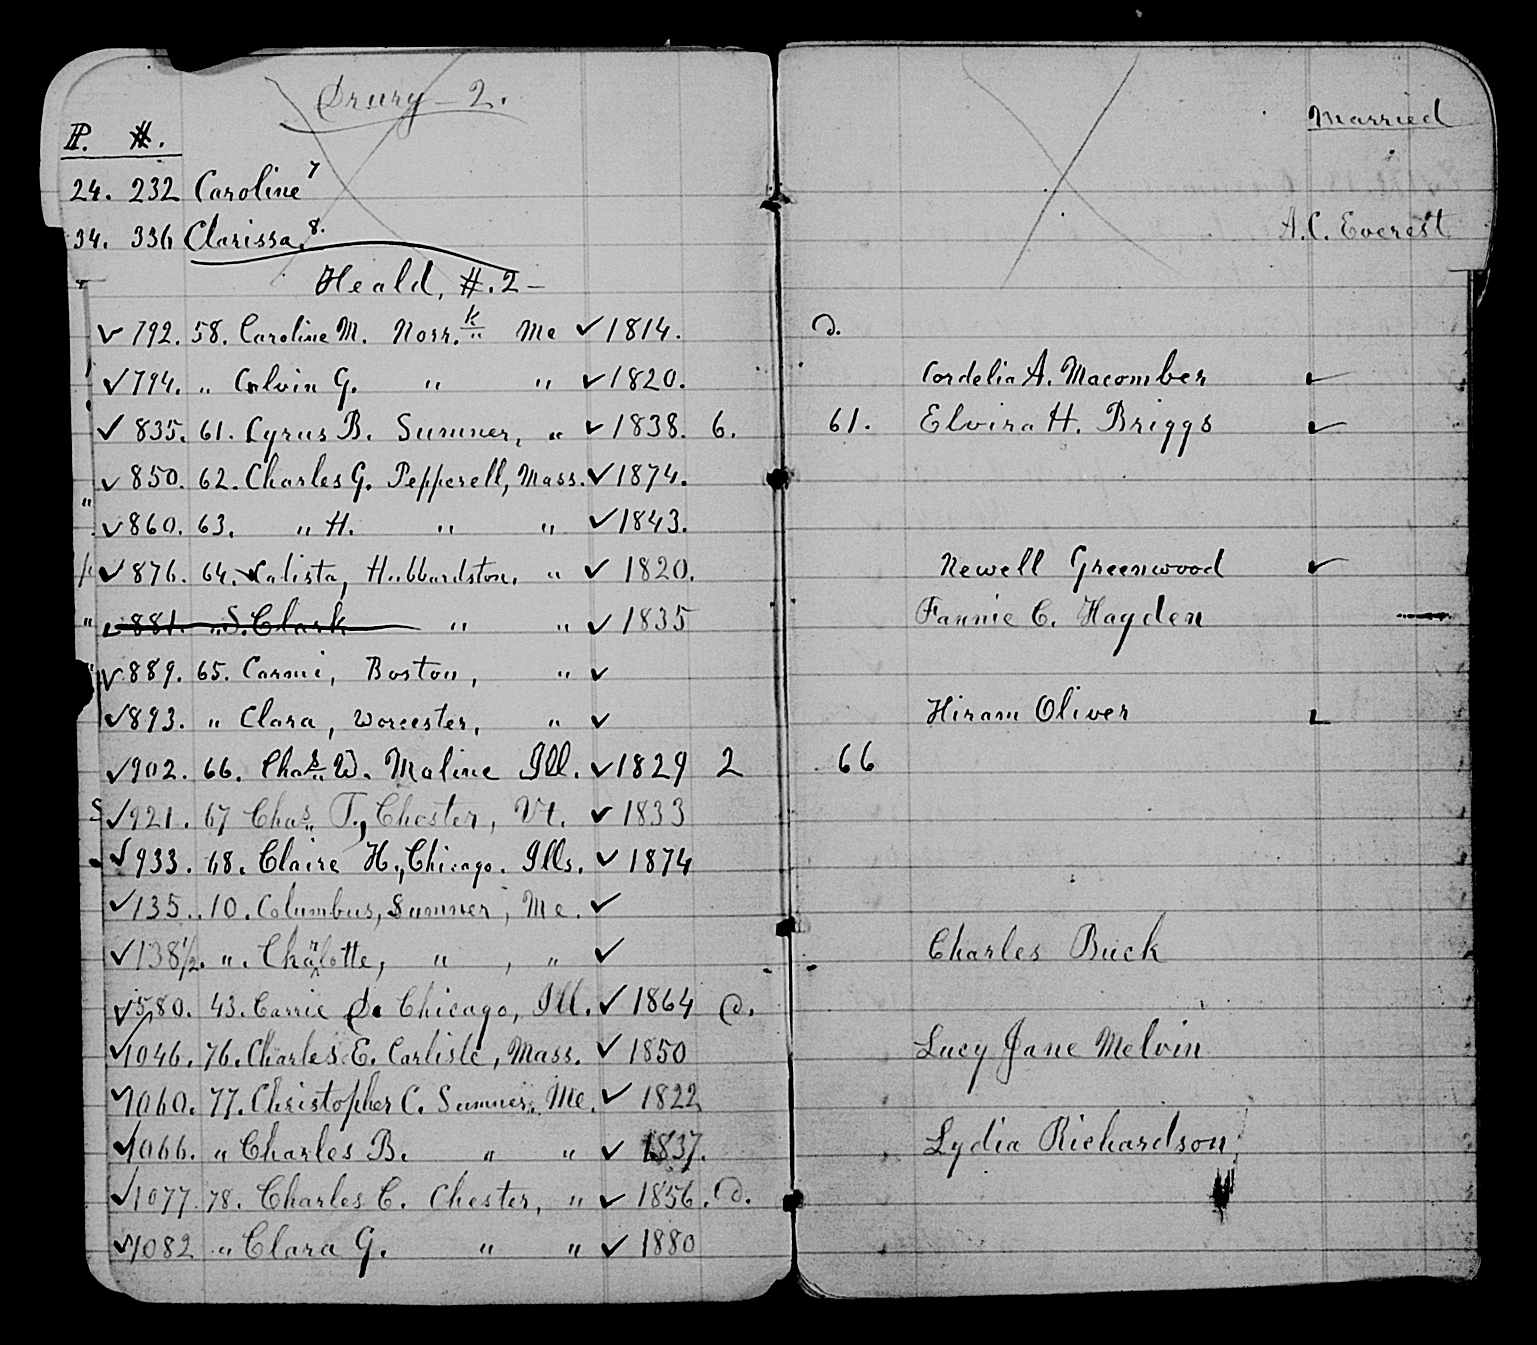 Drury - 2.
P. #. Married
24. 232 Caroline 7
34. 336 Clarissa. 8. A.C. Everest
Heald, #. 2 -
✓ 792. 58. Caroline M. Norr.k " Me ✓ 1814. d.
✓ 794. " Calvin G. " " ✓ 1820. Cordelia A. Macomber ✓
✓ 835. 61. Cyrus B. Sumner, " ✓ 1838. 6. 61. Elvira H. Briggs ✓
✓ 850. 62. Charles G. Pepperell, Mass. ✓ 1874.
" ✓ 860. 63. " H. " " ✓ 1843.
✓ 876. 64. Calista, Hubbardston, " ✓ 1820. Newell Greenwood ✓
" ✓ 881. " S. Clark " " ✓ 1835 Fannie C. Hayden —
" ✓ 889. 65. Carmi, Boston, " ✓
✓ 893. " Clara, Worcester, " ✓ Hiram Oliver ✓
✓ 902. 66. Chas. W. Moline Ill. ✓ 1829 2 66
✓ 921. 67 Chas. T., Chester, Vt. ✓ 1833
✓ 933. 68. Claire H., Chicago. Ills. ✓ 1874
✓ 135. 10. Columbus, Sumner, Me. ✓
✓ 138 1/2. ". Charlotte, " , " ✓ Charles Buck
✓ 580. 43. Carrie S. Chicago, Ill. ✓ 1864 d.
✓ 1046. 76. Charles E. Carlisle, Mass. ✓ 1850 Lucy Jane Melvin
✓ 1060. 77. Christopher C. Sumner, Me. ✓ 1822
✓ 1066. " Charles B. " " ✓ 1837. Lydia Richardson
✓ 1077 78. Charles C. Chester, " ✓ 1856. d.
✓ 1082 " Clara G. " " ✓ 1880